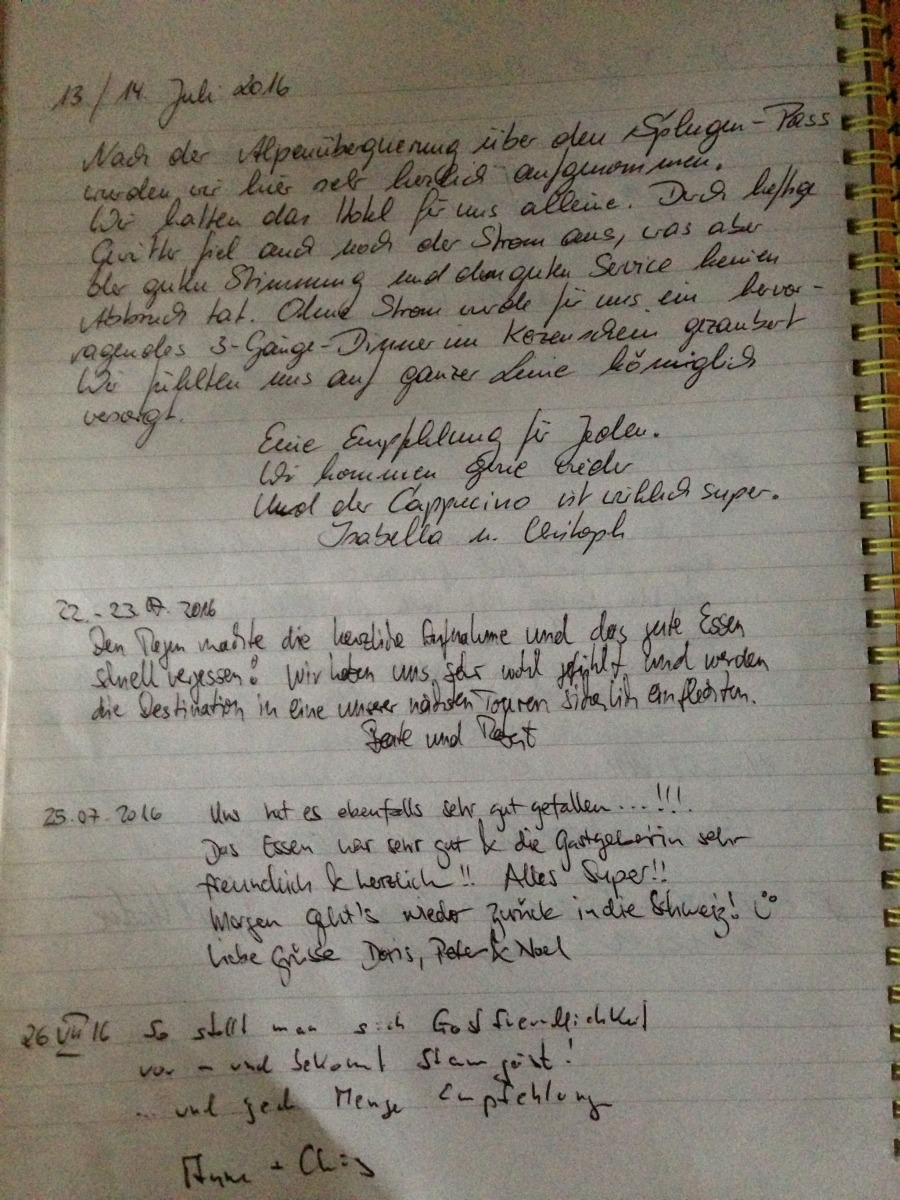 13/14. Juli 2016
Nach der Alpenüberquerung über den Splügen-Pass
wurden wir hier sehr herzlich aufgenommen.
Wir hatten das Hotel für uns alleine. Durch heftige
Gewitter fiel auch noch der Strom aus, was aber
der guten Stimmung und dem guten Service keinen
Abbruch tat. Ohne Strom wurde für uns ein hervor-
ragendes 3-Gänge-Dinner im Kerzenschein gezaubert
Wir fühlten uns auf ganzer Linie königlich
versorgt.
Eine Empfehlung für Jeden.
Wir kommen gerne wieder
Und der Cappucino ist wirklich super.
Isabella u. Christoph
22.-23.07.2016
Den Regen machte die herzliche Aufnahme und das gute Essen
schnell vergessen! Wir haben uns sehr wohl gefühlt und werden
die Destination in eine unserer nächsten Touren sicherlich einflechten.
Beate und Robert
25.07.2016 Uns hat es ebenfalls sehr gut gefallen...!!!
Das Essen war sehr gut & die Gastgeberin sehr
freundlich & herzlich!! Alles Super!!
Morgen geht's wieder zurück in die Schweiz!
Liebe Grüsse Doris, Peter & Noel
26 VII 16 So stellt man sich Gastfreundlichkeit
vor - und bekommt Stammgäste!
... und jede Menge Empfehlung